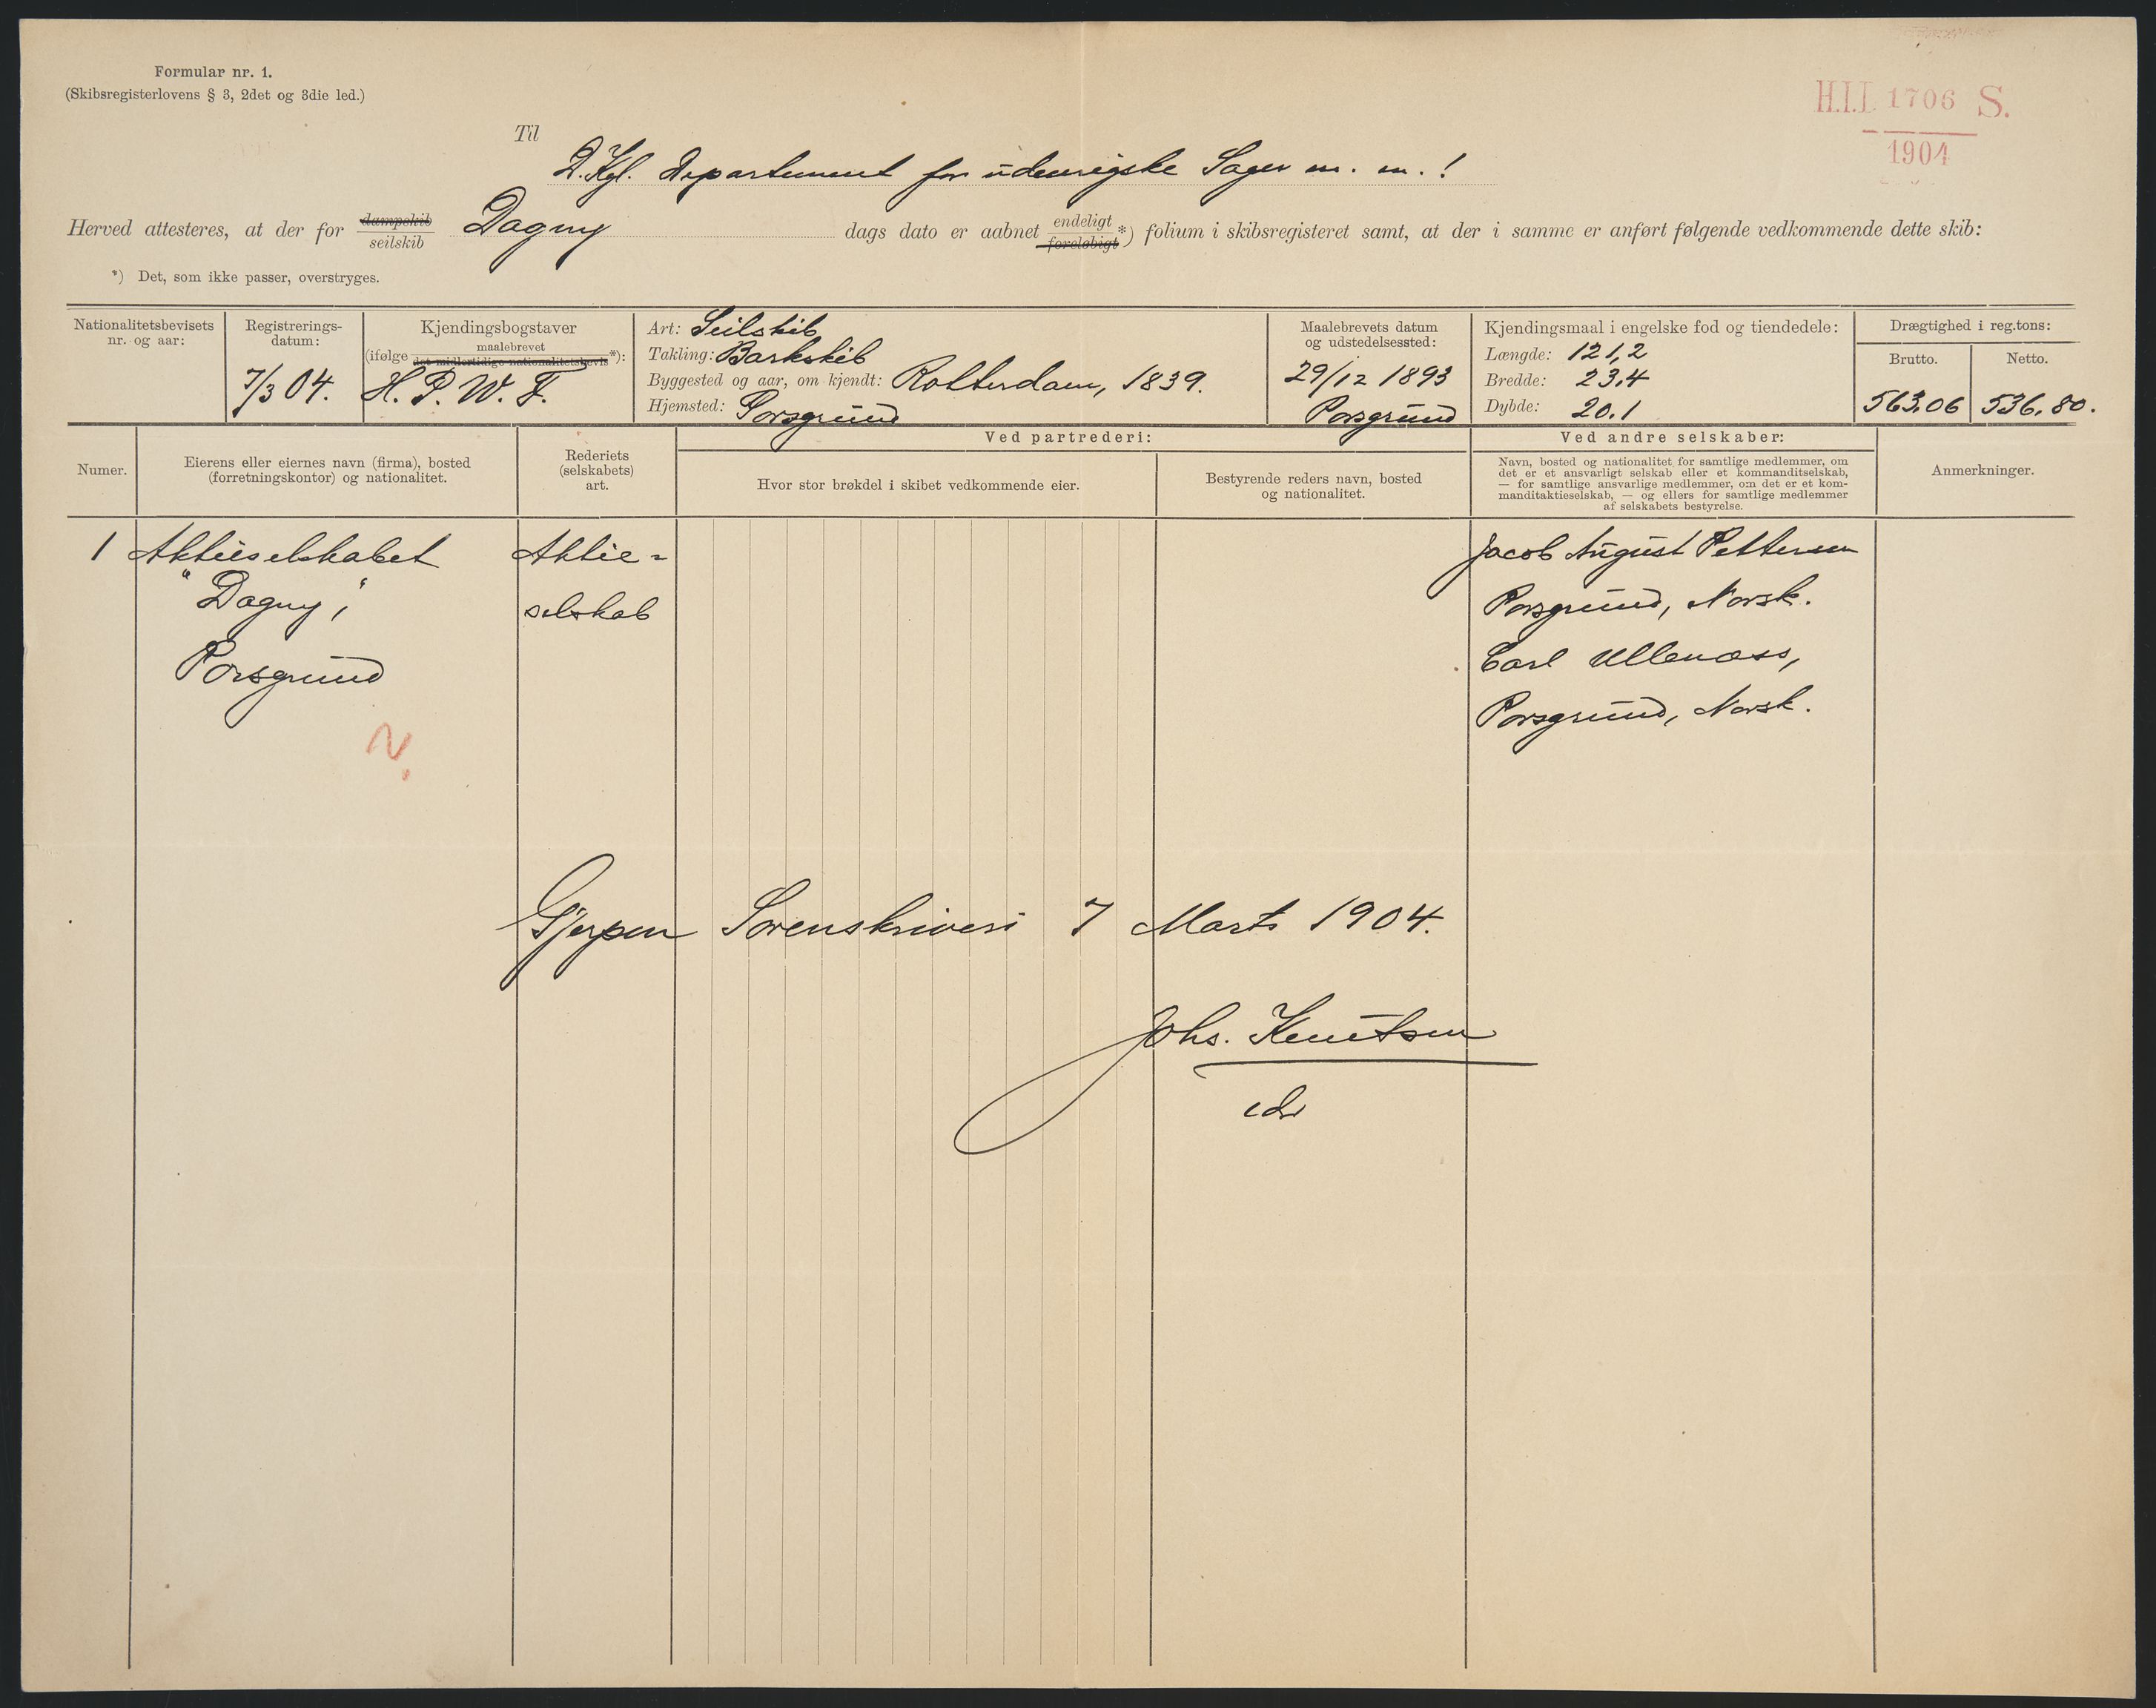 Formular nr. 1.
(Skibsregisterlovens § 3, 2det og 3die led.)
H.I.I. 1706 S.
1904
Til
D. Kgl. Departement for udenrigske Sager m. m.!
Herved attesteres, at der for dampskib seilskib Dagny dags dato er aabnet endeligt foreløbigt *) folium i skibsregisteret samt, at der i samme er anført følgende vedkommende dette skib:
*) Det, som ikke passer, overstryges.
Nationalitetsbevisets nr. og aar:
Registrerings-datum:
7/3 04.
Kjendingsbogstaver
(ifølge maalebrevet det midlertidige nationalitetsbevis *):
H. P. W. F.
Art: Seilskib
Takling: Barkskib
Byggested og aar, om kjendt: Rotterdam, 1839.
Hjemsted: Porsgrund
Maalebrevets datum og udstedelsessted:
29/12 1893
Porsgrund
Kjendingsmaal i engelske fod og tiendedele:
Længde: 121,2
Bredde: 23,4
Dybde: 20.1
Drægtighed i reg.tons:
Brutto. Netto.
563.06 536.80.
Numer.
Eierens eller eiernes navn (firma), bosted
(forretningskontor) og nationalitet.
Rederiets
(selskabets)
art.
Ved partrederi:
Hvor stor brøkdel i skibet vedkommende eier.
Bestyrende reders navn, bosted
og nationalitet.
Ved andre selskaber:
Navn, bosted og nationalitet for samtlige medlemmer, om
det er et ansvarligt selskab eller et kommanditselskab,
— for samtlige ansvarlige medlemmer, om det er et kom-
manditaktieselskab, — og ellers for samtlige medlemmer
af selskabets bestyrelse.
Anmerkninger.
1 Aktieselskabet
"Dagny",
Porsgrund
N.
Aktie-
selskab
Jacob August Pettersen
Porsgrund, Norsk.
Carl Ullenæss,
Porsgrund, Norsk.
Gjerpen Sorenskriveri 7 Marts 1904.
Johs. Knutsen